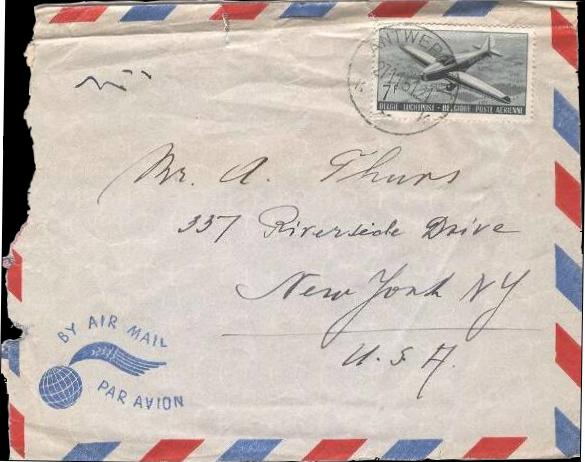 ANTWERP
7F
BELGIË LUCHTPOST - BELGIQUE POSTE AERIENNE
Mr. A. Thurs
337 Riverside Drive
New York NY
U.S.A.
BY AIR MAIL
PAR AVION